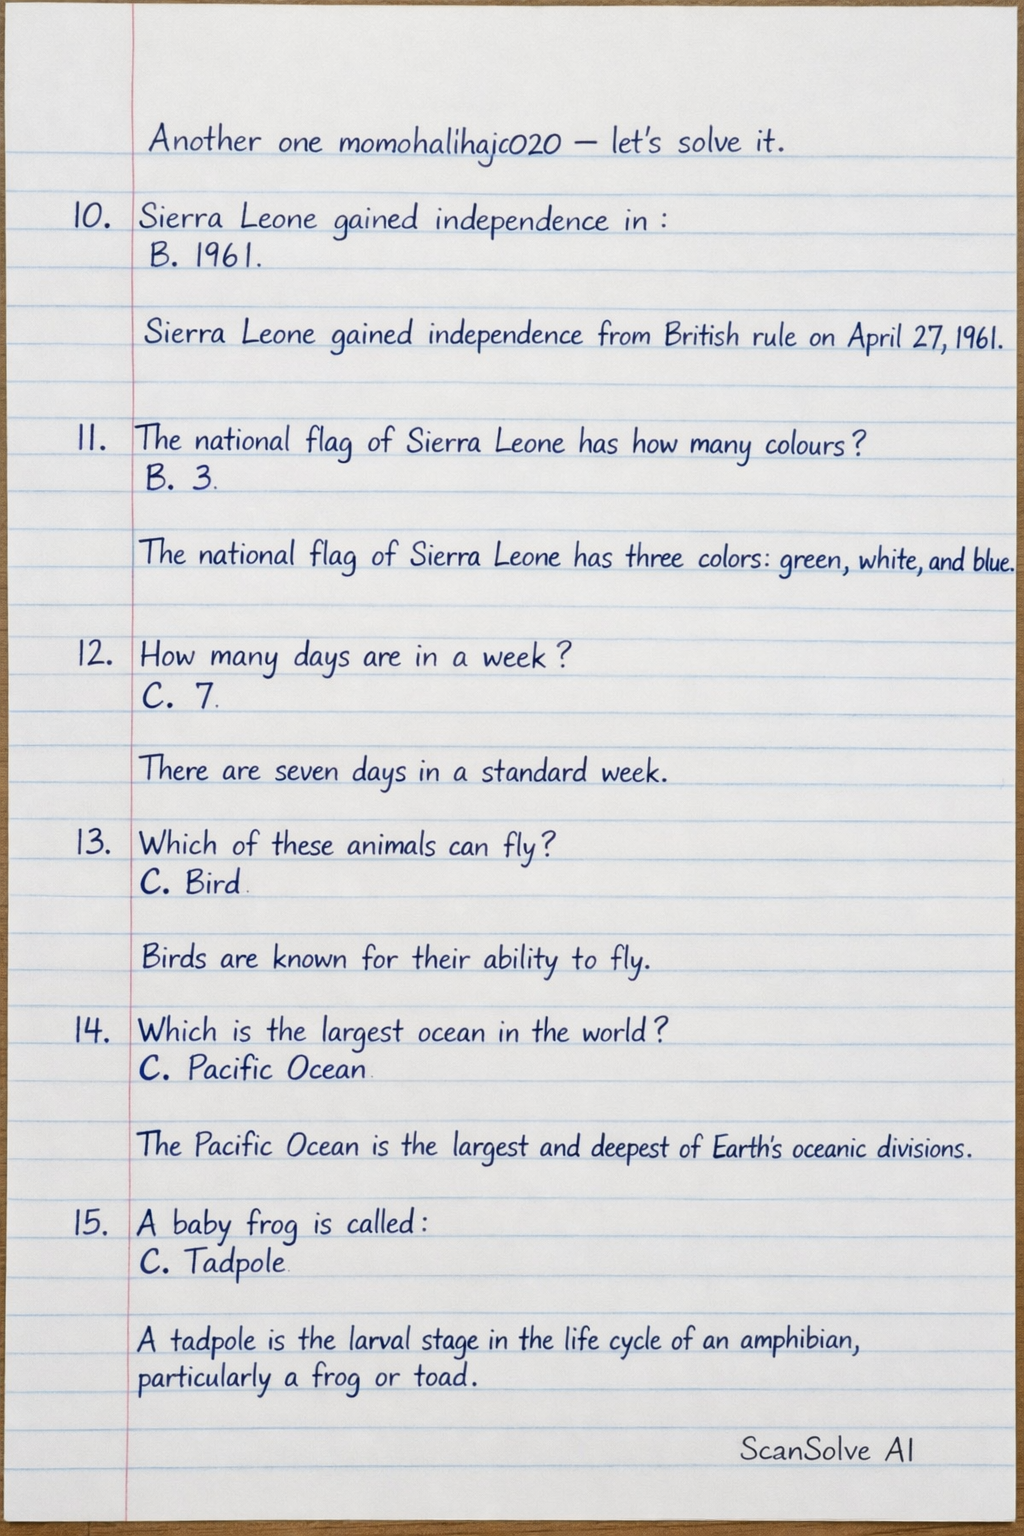 Another one momohalihajc020 — let's solve it.
10. Sierra Leone gained independence in :
B. 1961.
Sierra Leone gained independence from British rule on April 27, 1961.
11. The national flag of Sierra Leone has how many colours?
B. 3.
The national flag of Sierra Leone has three colors: green, white, and blue.
12. How many days are in a week?
C. 7.
There are seven days in a standard week.
13. Which of these animals can fly?
C. Bird.
Birds are known for their ability to fly.
14. Which is the largest ocean in the world?
C. Pacific Ocean.
The Pacific Ocean is the largest and deepest of Earth's oceanic divisions.
15. A baby frog is called:
C. Tadpole.
A tadpole is the larval stage in the life cycle of an amphibian,
particularly a frog or toad.
ScanSolve AI